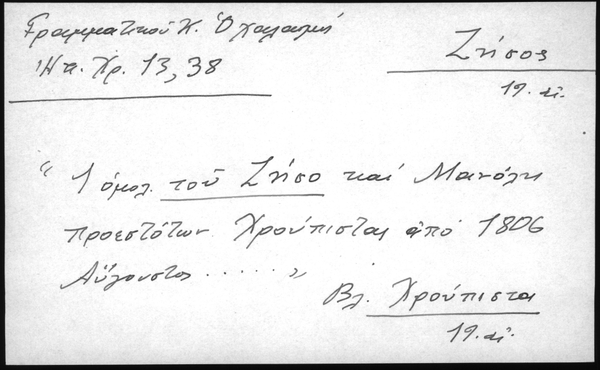 Γραμματικού Κ. Ὁ χαλασμί
Ἠπ. Χρ. 13, 38
Ζήσος
19. αἰ.
" 1 ὁμολ. τοῦ Ζήσο καί Μανόλη
προεστότων Χρούπιστας ἀπό 1806
Αὔγουστος ..... "
Βλ. Χρούπιστα
19. αἰ.